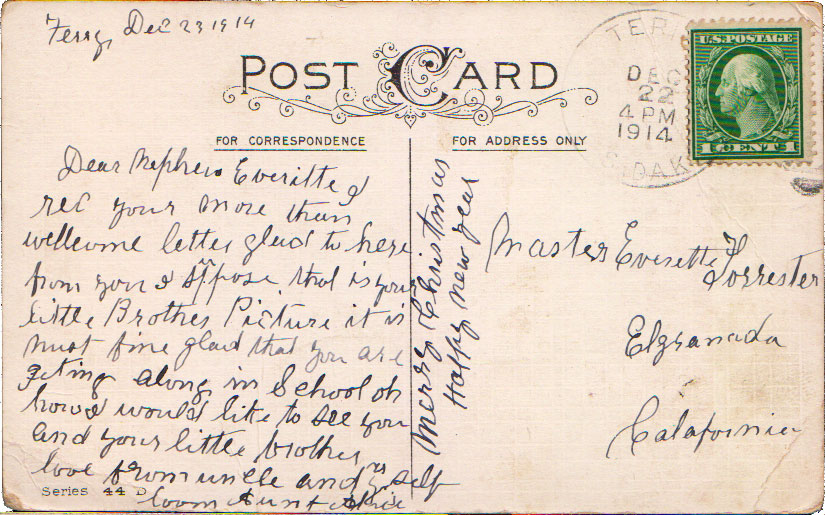 Ferry, Dec 23 1914
POST CARD
FOR CORRESPONDENCE
FOR ADDRESS ONLY
TER
DEC
22
4 PM
1914
DAK
U.S. POSTAGE
1 CENT 1
Dear Nephew Everitte I
rec your more than
wellcome letter glad to here
from you I suppose that is your
little Brothes Picture it is
must fine glad that you are
geting along in School oh
how I would like to see you
and your little brother
love from uncle and my self
Aunt
Series 44 D
Merry Christmas
Happy new year
Master Everitte Forrester
Elgranada
Calafornia